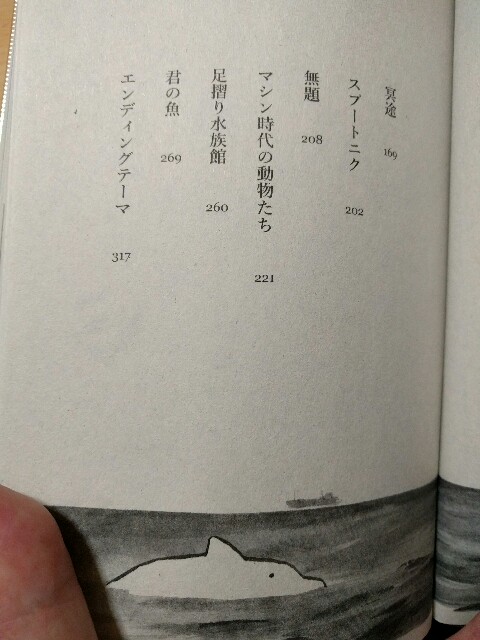 冥途 169
スプートニク 202
無題 208
マシン時代の動物たち 221
足摺り水族館 260
君の魚 269
エンディングテーマ 317